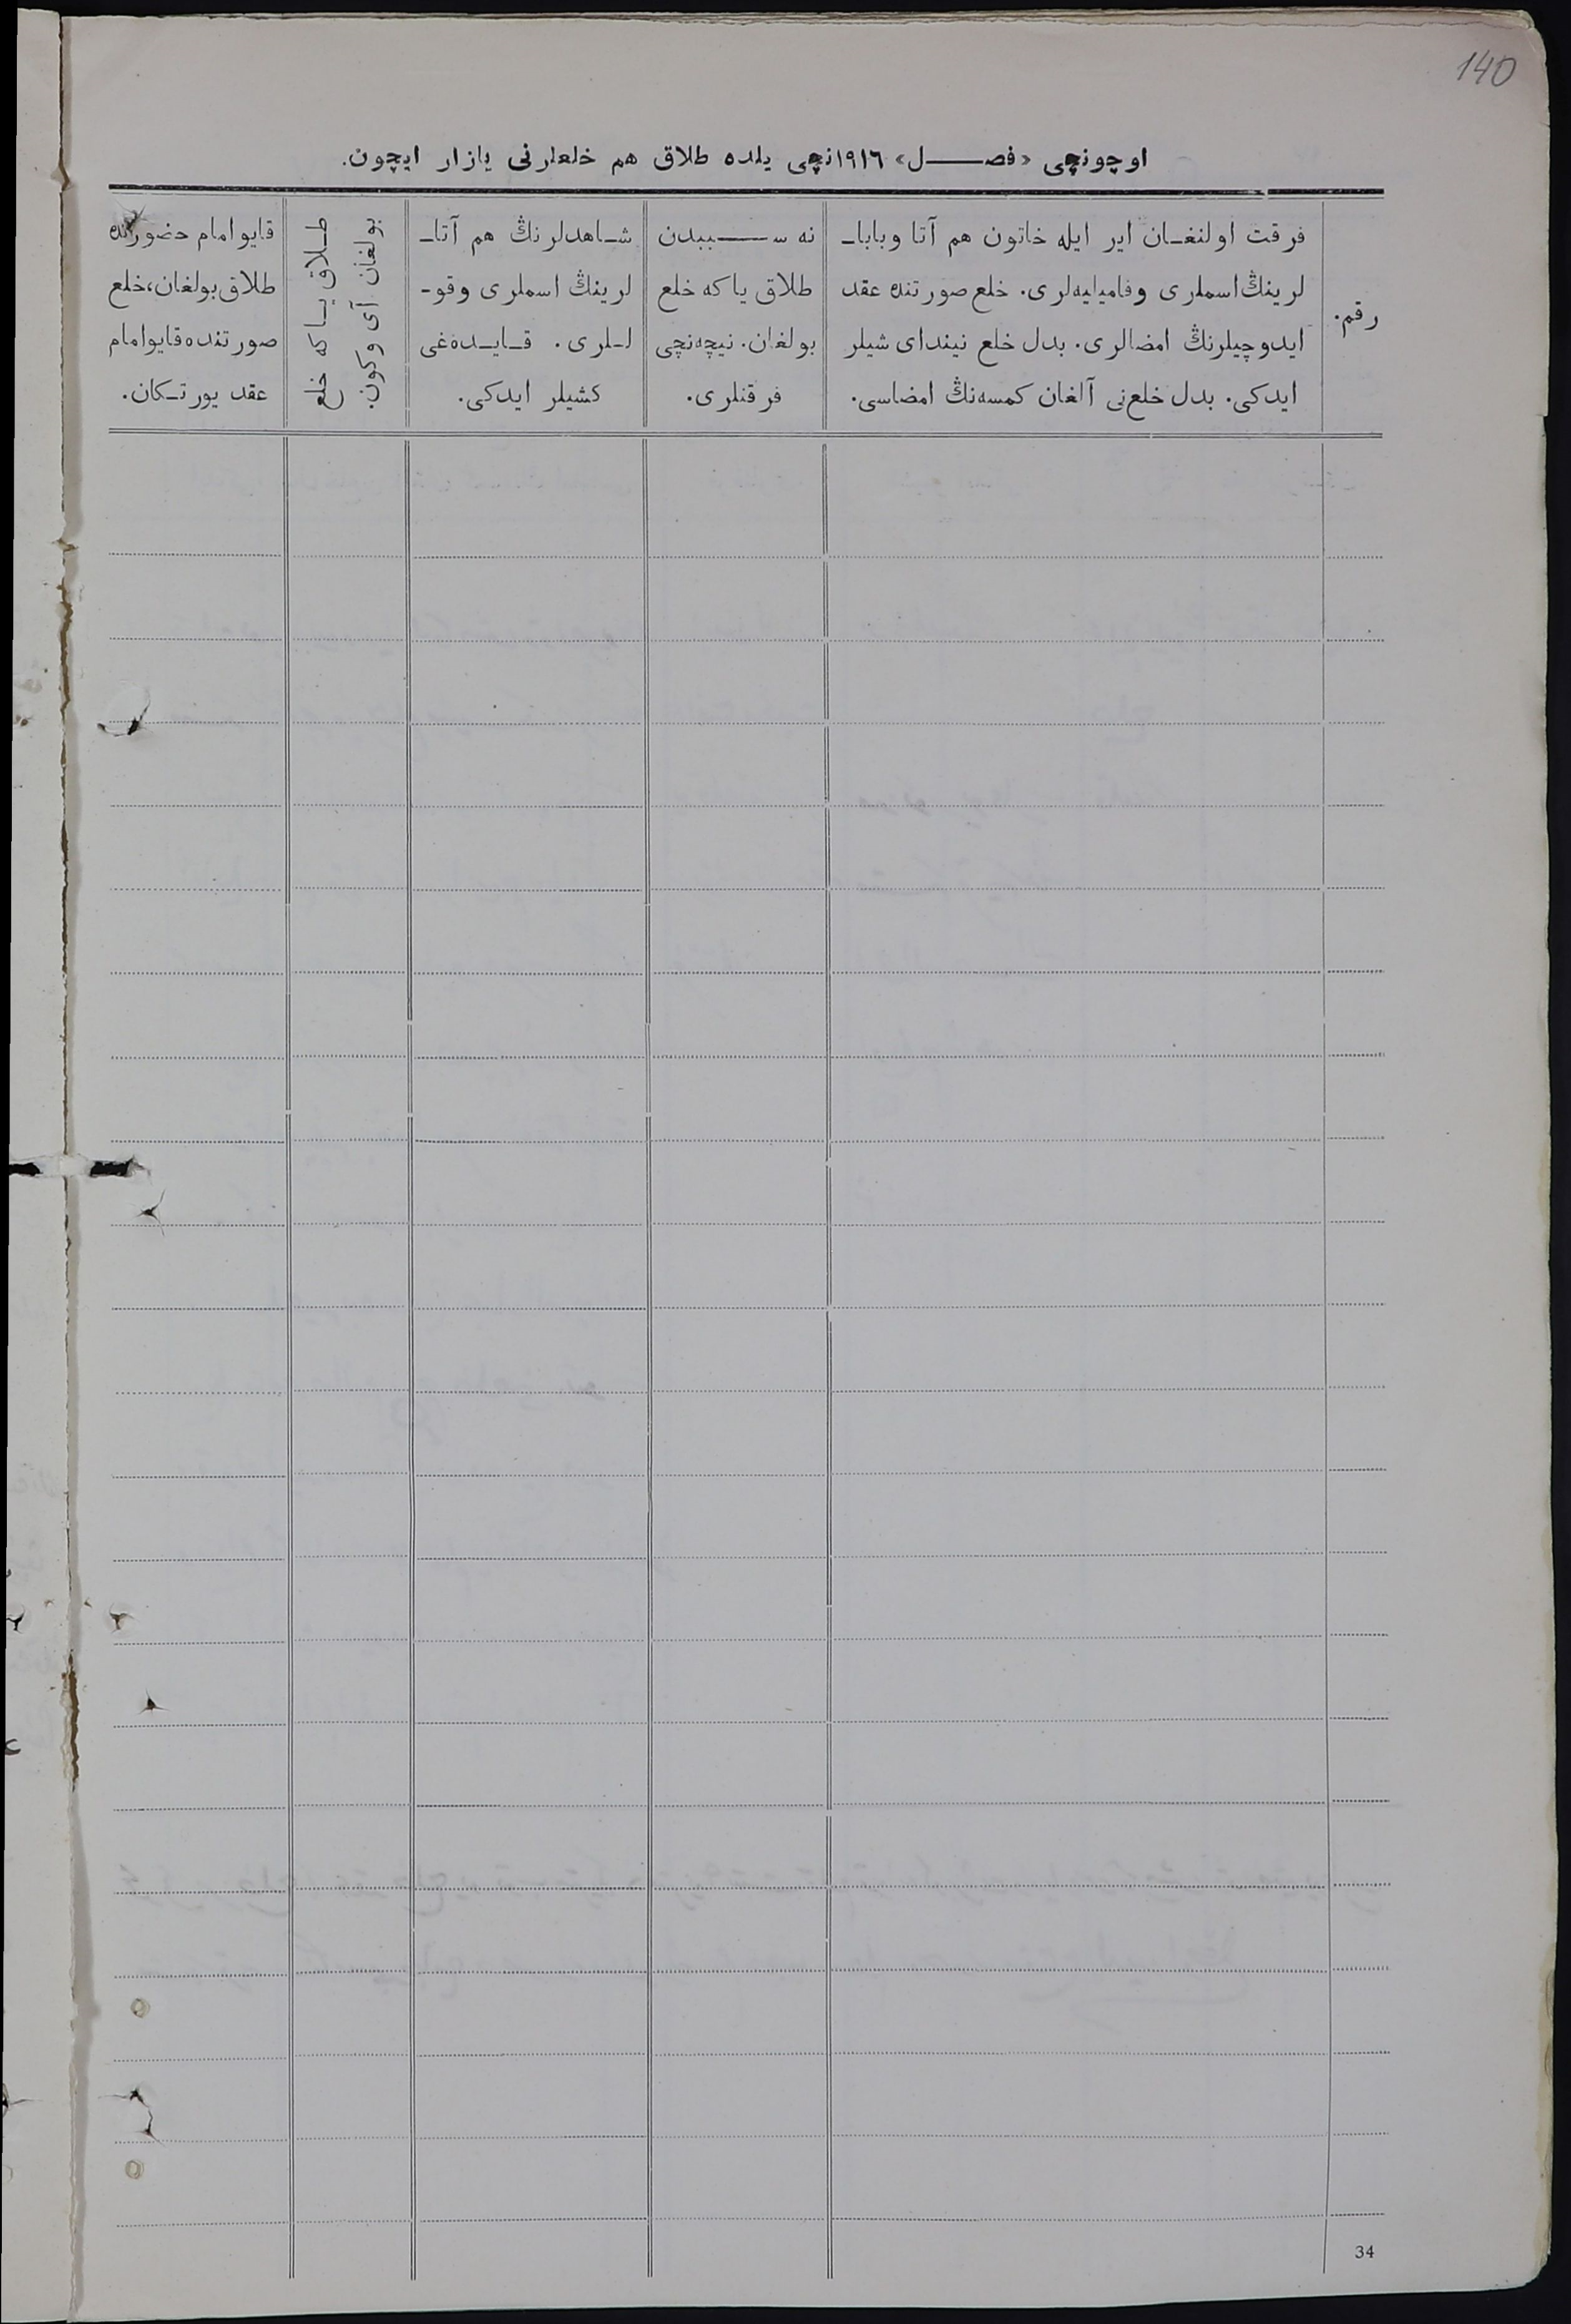 140
اوچونچی «فصل» ١٩١٦نچی یلده طلاق هم خلعلرنی یازار ایچون.
رقم.
فرقت اولنغان ایر ایله خاتون هم آتا وبابا-
لرینڭ اسملری وفامیلیه‌لری. خلع صورتنده عقد
ایدوچیلرنڭ امضالری. بدل خلع نیندای شیلر
ایدکی. بدل خلع‌نی آلغان کمسه‌نڭ امضاسی.
نه سببدن
طلاق یاکه خلع
بولغان. نیچه‌نچی
فرقتلری.
شاهدلرنڭ هم آتا-
لرینڭ اسملری وقو-
للری. قایده‌غی
کشیلر ایدکی.
طلاق یاکه خلع
بولغان آی وکون.
قایو امام حضورنده
طلاق بولغان، خلع
صورتنده قایو امام
عقد یورتکان.
34